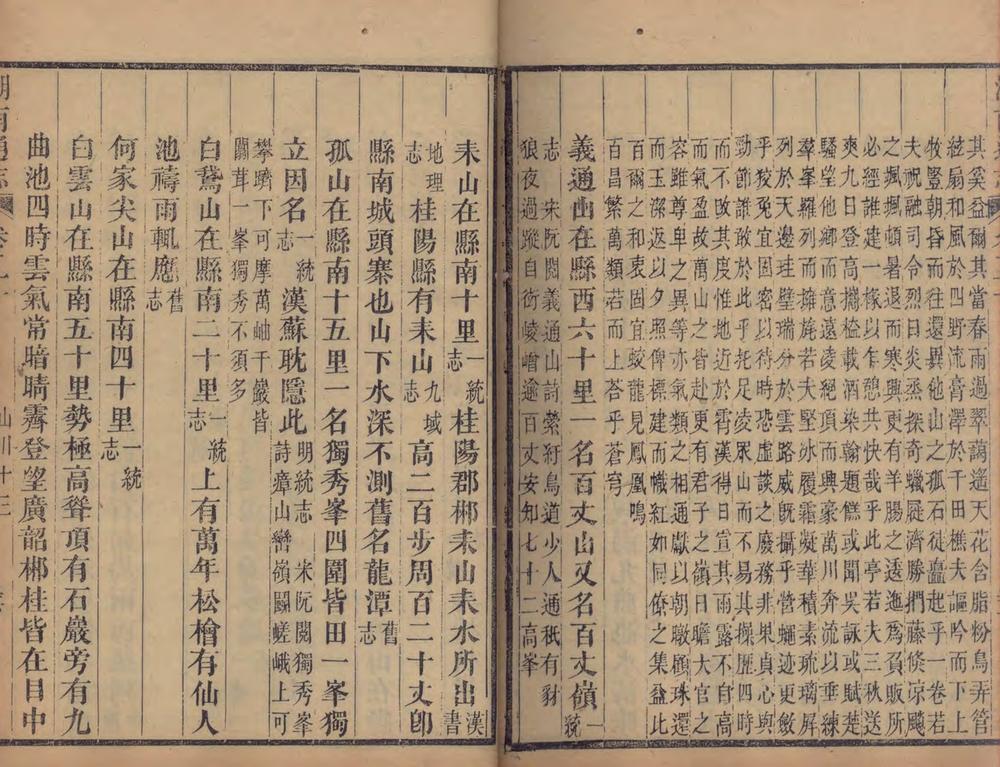 其奚益爾其當春雨過翠藹遙天花含脂粉鳥弄管
絃扇和風於四野流膏澤於千田樵夫謳吟而下上
牧豎朝昏而往還異他山之孤石徒矗起乎一卷若
夫祝融司令烈日炎蒸探奇蠟屐濟勝捫藤倏涼飈
之颯颯頓忘暑退而寒興更有羊腸之逕為負販所
必經誰建一椽以乍憩共快哉乎此亭若夫三秋送
爽九日登高攜榼載酒染翰題餻或聞吳詠或賦楚
騷望他鄉而意遠凌絕頂而興豪萬川奔流以垂練
羣峯羅列而擁旄若夫堅冰履霜凝華積素琉璃屏
列於天邊珪璧瑞分於雲路威旣攝乎營蠅迹更斂
乎狡兔宜固密以待時恐虛談之廢務非果貞心與
勁節誰敢於此乎托足凌眾山而不易其操歷四時
而不改其度惟地近於霄漢得日宣其雨露不自高
而氣盈故萬山之皆赴更有君子之嶺日瞻大官之
容雖尊卑之異等亦氣類之相通獻以朝暾頳珠還
而玉潔返以夕照俾標建而幟紅如同僚之集益此
百爾之和衷固宜蛟龍見而鳳凰鳴
百昌繁而萬類若而上荅乎蒼穹
義通山在縣西六十里一名百丈山又名百丈嶺一統
志 宋阮閱義通山詩縈紆鳥道少人通秖有豺
狼夜過蹤自衒崚嶒逾百丈安知七十二高峯
耒山在縣南十里一統志桂陽郡郴耒山耒水所出漢書
地理志桂陽縣有耒山九域志高二百步周百二十丈卽
縣南城頭寨也山下水深不測舊名龍潭舊志
孤山在縣南十五里一名獨秀峯四圍皆田一峯獨
立因名一統志漢蘇耽隱此明統志 宋阮閱獨秀峯詩瘴山巒嶺鬭嵯峨上可
攀躋下可摩萬岫千巖皆
闒茸一峯獨秀不須多
白鵞山在縣南二十里一統志上有萬年松檜有仙人
池禱雨輒應舊志
何家尖山在縣南四十里一統志
白雲山在縣南五十里勢極高聳頂有石巖旁有九
曲池四時雲氣常暗晴霽登望廣韶郴桂皆在目中
山川十三